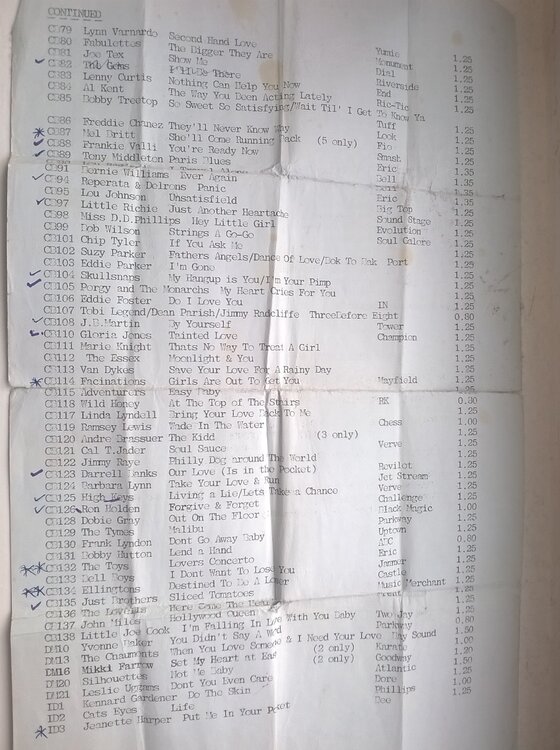 CONTINUED
CB79 Lynn Varnardo Second Hand Love 1.25
CB80 Fabulettes The Bigger They Are Monument 1.25
CB81 Joe Tex Show Me Dial 1.25
CB82 The Gems I'll Be There Riverside 1.25
CB83 Lenny Curtis Nothing Can Help You Now End 1.25
CB84 Al Kent The Way You Been Acting Lately Ric-Tic 1.25
CB85 Bobby Treetop So Sweet So Satisfying/Wait Til' I Get To Know Ya
Tuff 1.25
CB86 Freddie Chanez They'll Never Know Why Look 1.25
CB87 Mel Britt She'll Come Running Back (5 only) 1.25
CB88 Frankie Valli You're Ready Now Smash 1.25
CB89 Tony Middleton Paris Blues Eric 1.25
CB91 Bernie Williams Ever Again Bell 1.35
CB94 Reperata & Delrons Panic 1.25
CB95 Lou Johnson Unsatisfield Big Top 1.25
CB97 Little Richie Just Another Heartache Sound Stage 1.25
CB98 Miss D.D.Phillips Hey Little Girl Evolution 1.25
CB99 Bob Wilson Strings A Go-Go Soul Galore 1.25
CB101 Chip Tyler If You Ask Me
CB102 Suzy Parker Fathers Angels/Dance Of Love/Bok To Bak Port 1.25
CB103 Eddie Parker I'm Gone 1.25
CB104 Skullsnaps My Hangup is You/I'm Your Pimp 1.25
CB105 Porgy and The Monarchs My Heart Cries For You 1.25
CB106 Eddie Foster Do I Love You IN 1.25
CB107 Tobi Legend/Dean Parish/Jimmy Radcliffe ThreeBefore Eight 0.80
CB108 J.B.Martin By Yourself Tower 1.25
CB110 Gloria Jones Tainted Love Champion 1.25
CB111 Marie Knight Thats No Way To Treat A Girl 1.25
CB112 The Essex Moonlight & You 1.25
CB113 Van Dykes Save Your Love For A Rainy Day 1.25
CB114 Facinations Girls Are Out To Get You Mayfield 1.25
CB115 Adventurers Easy Baby 1.25
CB116 Wild Honey At The Top of The Stairs RK 0.80
CB117 Linda Lyndell Bring Your Love Back To Me 1.25
CB119 Ramsey Lewis Wade In The Water Chess 1.00
CB120 Andre Brassuer The Kidd (3 only) 1.25
CB121 Cal T.Jader Soul Sauce Verve 1.25
CB122 Jimmy Raye Philly Dog around The World 1.25
CB123 Darrell Banks Our Love (Is in the Pocket) Revilot 1.25
CB124 Barbara Lynn Take Your Love & Run Jet Stream 1.25
CB125 High Keys Living a Lie/Lets Take a Chance Verve 1.25
CB126 Ron Holden Forgive & Forget Challenge 1.25
CB128 Dobie Gray Out On The Floor Black Magic 1.00
CB129 The Tymes Malibu Parkway 1.25
CB130 Frank Lyndon Dont Go Away Baby Uptown 1.25
CB131 Bobby Hutton Lend a Hand ABC 0.80
CB132 The Toys Lovers Concerto Eric 1.25
CB133 Bell Boys I Dont Want To Lose You Jamer 1.25
CB134 Ellingtons Destined To Be A Loser Castle 1.25
CB135 Just Brothers Sliced Tomatoes Music Merchant 1.25
CB136 The Lovells Here Come The 1.25
CB137 John Miles Hollywood Queen
CB138 Little Joe Cook I'm Falling In Love With You Baby Two Jay 1.25
DM10 Yvonne Baker You Didn't Say A Word Parkway 0.80
DM13 The Chaumonts When You Love Someone & I Need Your Love Bay Sound 1.50
DM16 Mikki Farrow Set My Heart at Ease (2 only) Karate 1.00
DM20 Silhouettes Not Me Baby (2 only) Goodway 1.20
DM21 Leslie Uggams Dont You Even Care Atlantic 1.50
ID1 Kennard Gardener Do The Skin Dore 1.25
ID2 Cats Eyes Life Phillips 1.00
ID3 Jeanette Harper Put Me In Your Pocket Dee 1.25